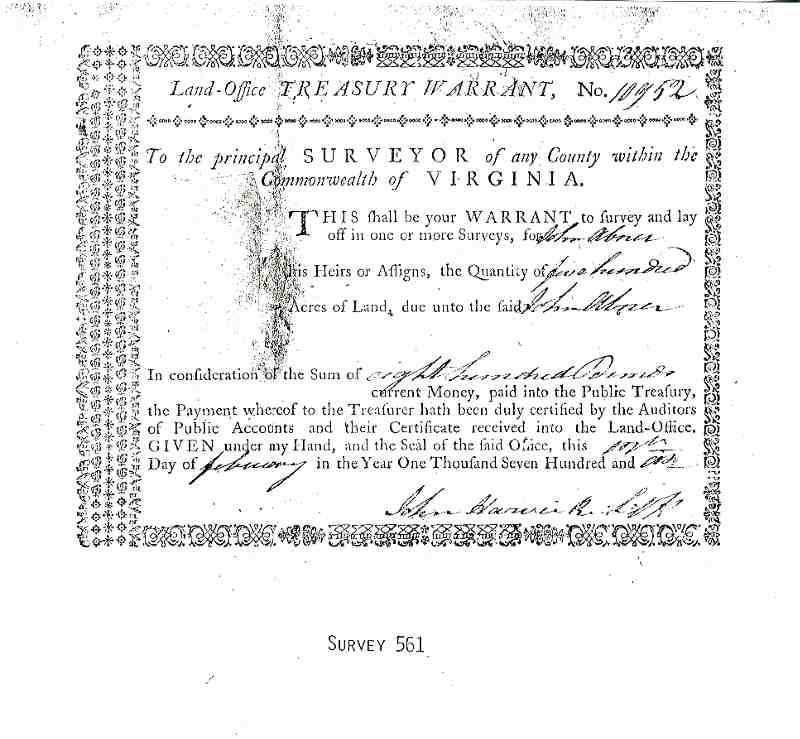 Land-Office TREASURY WARRANT, No. 10952
To the principal SURVEYOR of any County within the
Commonwealth of VIRGINIA.
THIS ſhall be your WARRANT to ſurvey and lay
off in one or more Surveys, for John Abner
his Heirs or Aſſigns, the Quantity of five hundred
Acres of Land, due unto the ſaid John Abner
In conſideration of the Sum of eight hundred Pounds
current Money, paid into the Public Treaſury,
the Payment whereof to the Treaſurer hath been duly certified by the Auditors
of Public Accounts and their Certificate received into the Land-Office.
GIVEN under my Hand, and the Seal of the ſaid Office, this
Day of february in the Year One Thouſand Seven Hundred and
John Harvie R. L. Off.
SURVEY 561